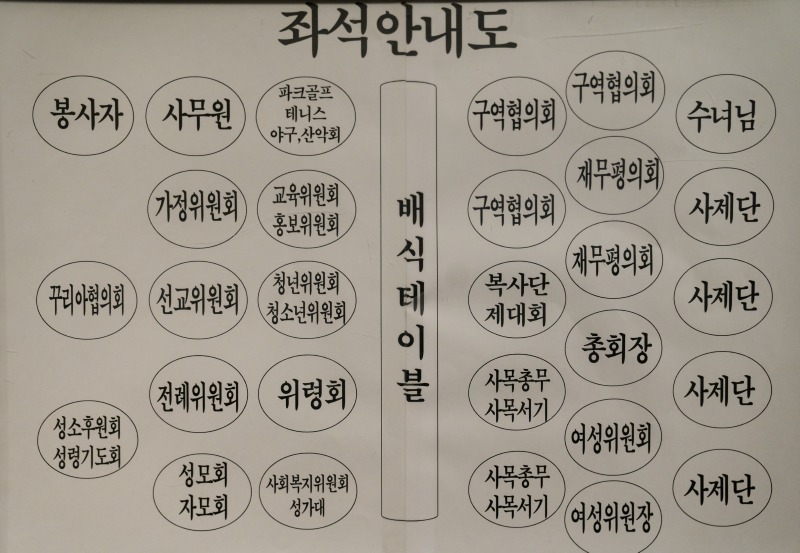 좌석안내도
봉사자
사무원
파크골프
테니스
야구,산악회
구역협의회
구역협의회
수녀님
가정위원회
교육위원회
홍보위원회
구역협의회
재무평의회
사제단
꾸리아협의회
선교위원회
청년위원회
청소년위원회
배식테이블
복사단
제대회
재무평의회
사제단
전례위원회
위령회
사목총무
사목서기
총회장
사제단
성소후원회
성령기도회
성모회
자모회
사회복지위원회
성가대
사목총무
사목서기
여성위원회
여성위원장
사제단